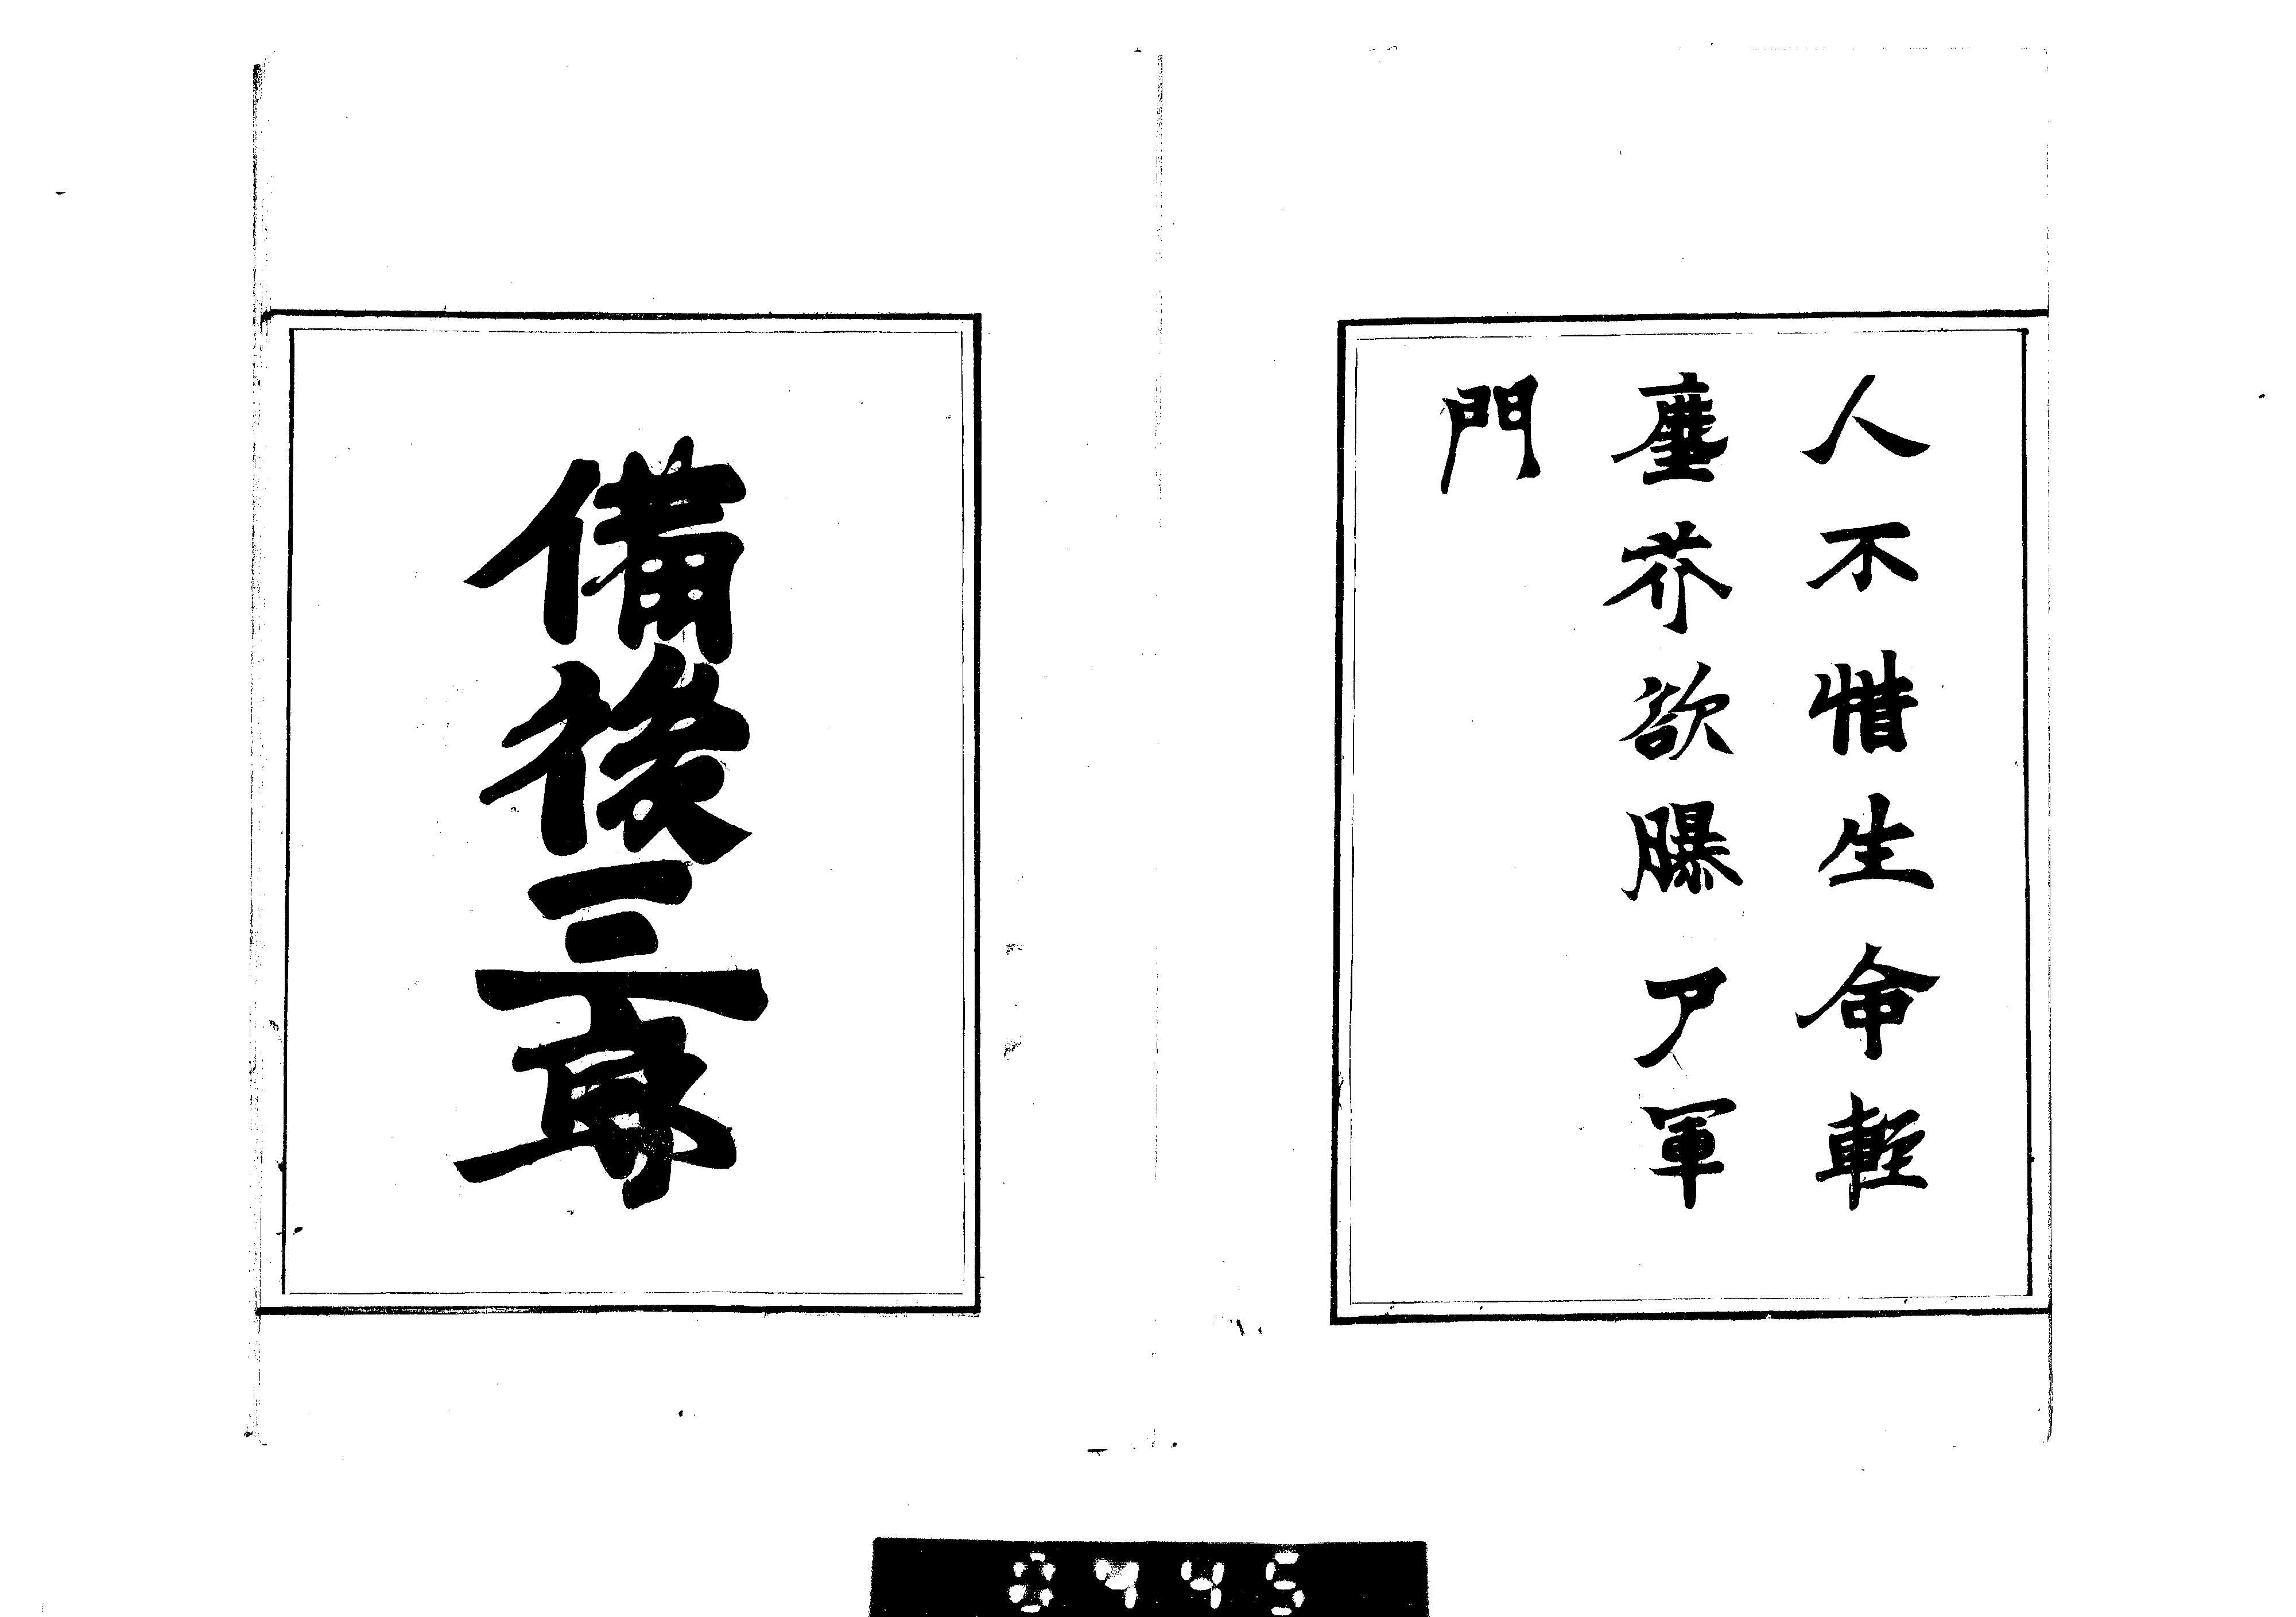 人不惜生命輕
塵芥欲曝尸軍
門
備後三郎